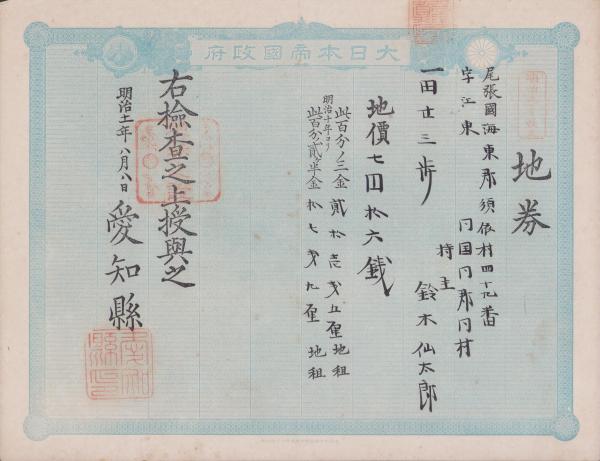 大日本帝國政府
地券
尾張國海東郡須依村四十九番
字江東 同国同郡同村
持主 鈴木仙太郎
一田廿三歩
地價七円拾六銭
此百分ノ三金 貳拾壱銭五厘 地租
明治十年ヨリ
此百分ノ貳半金 拾七銭九厘 地租
右檢査之上授與之
明治十一年八月八日 愛知縣
愛知縣印